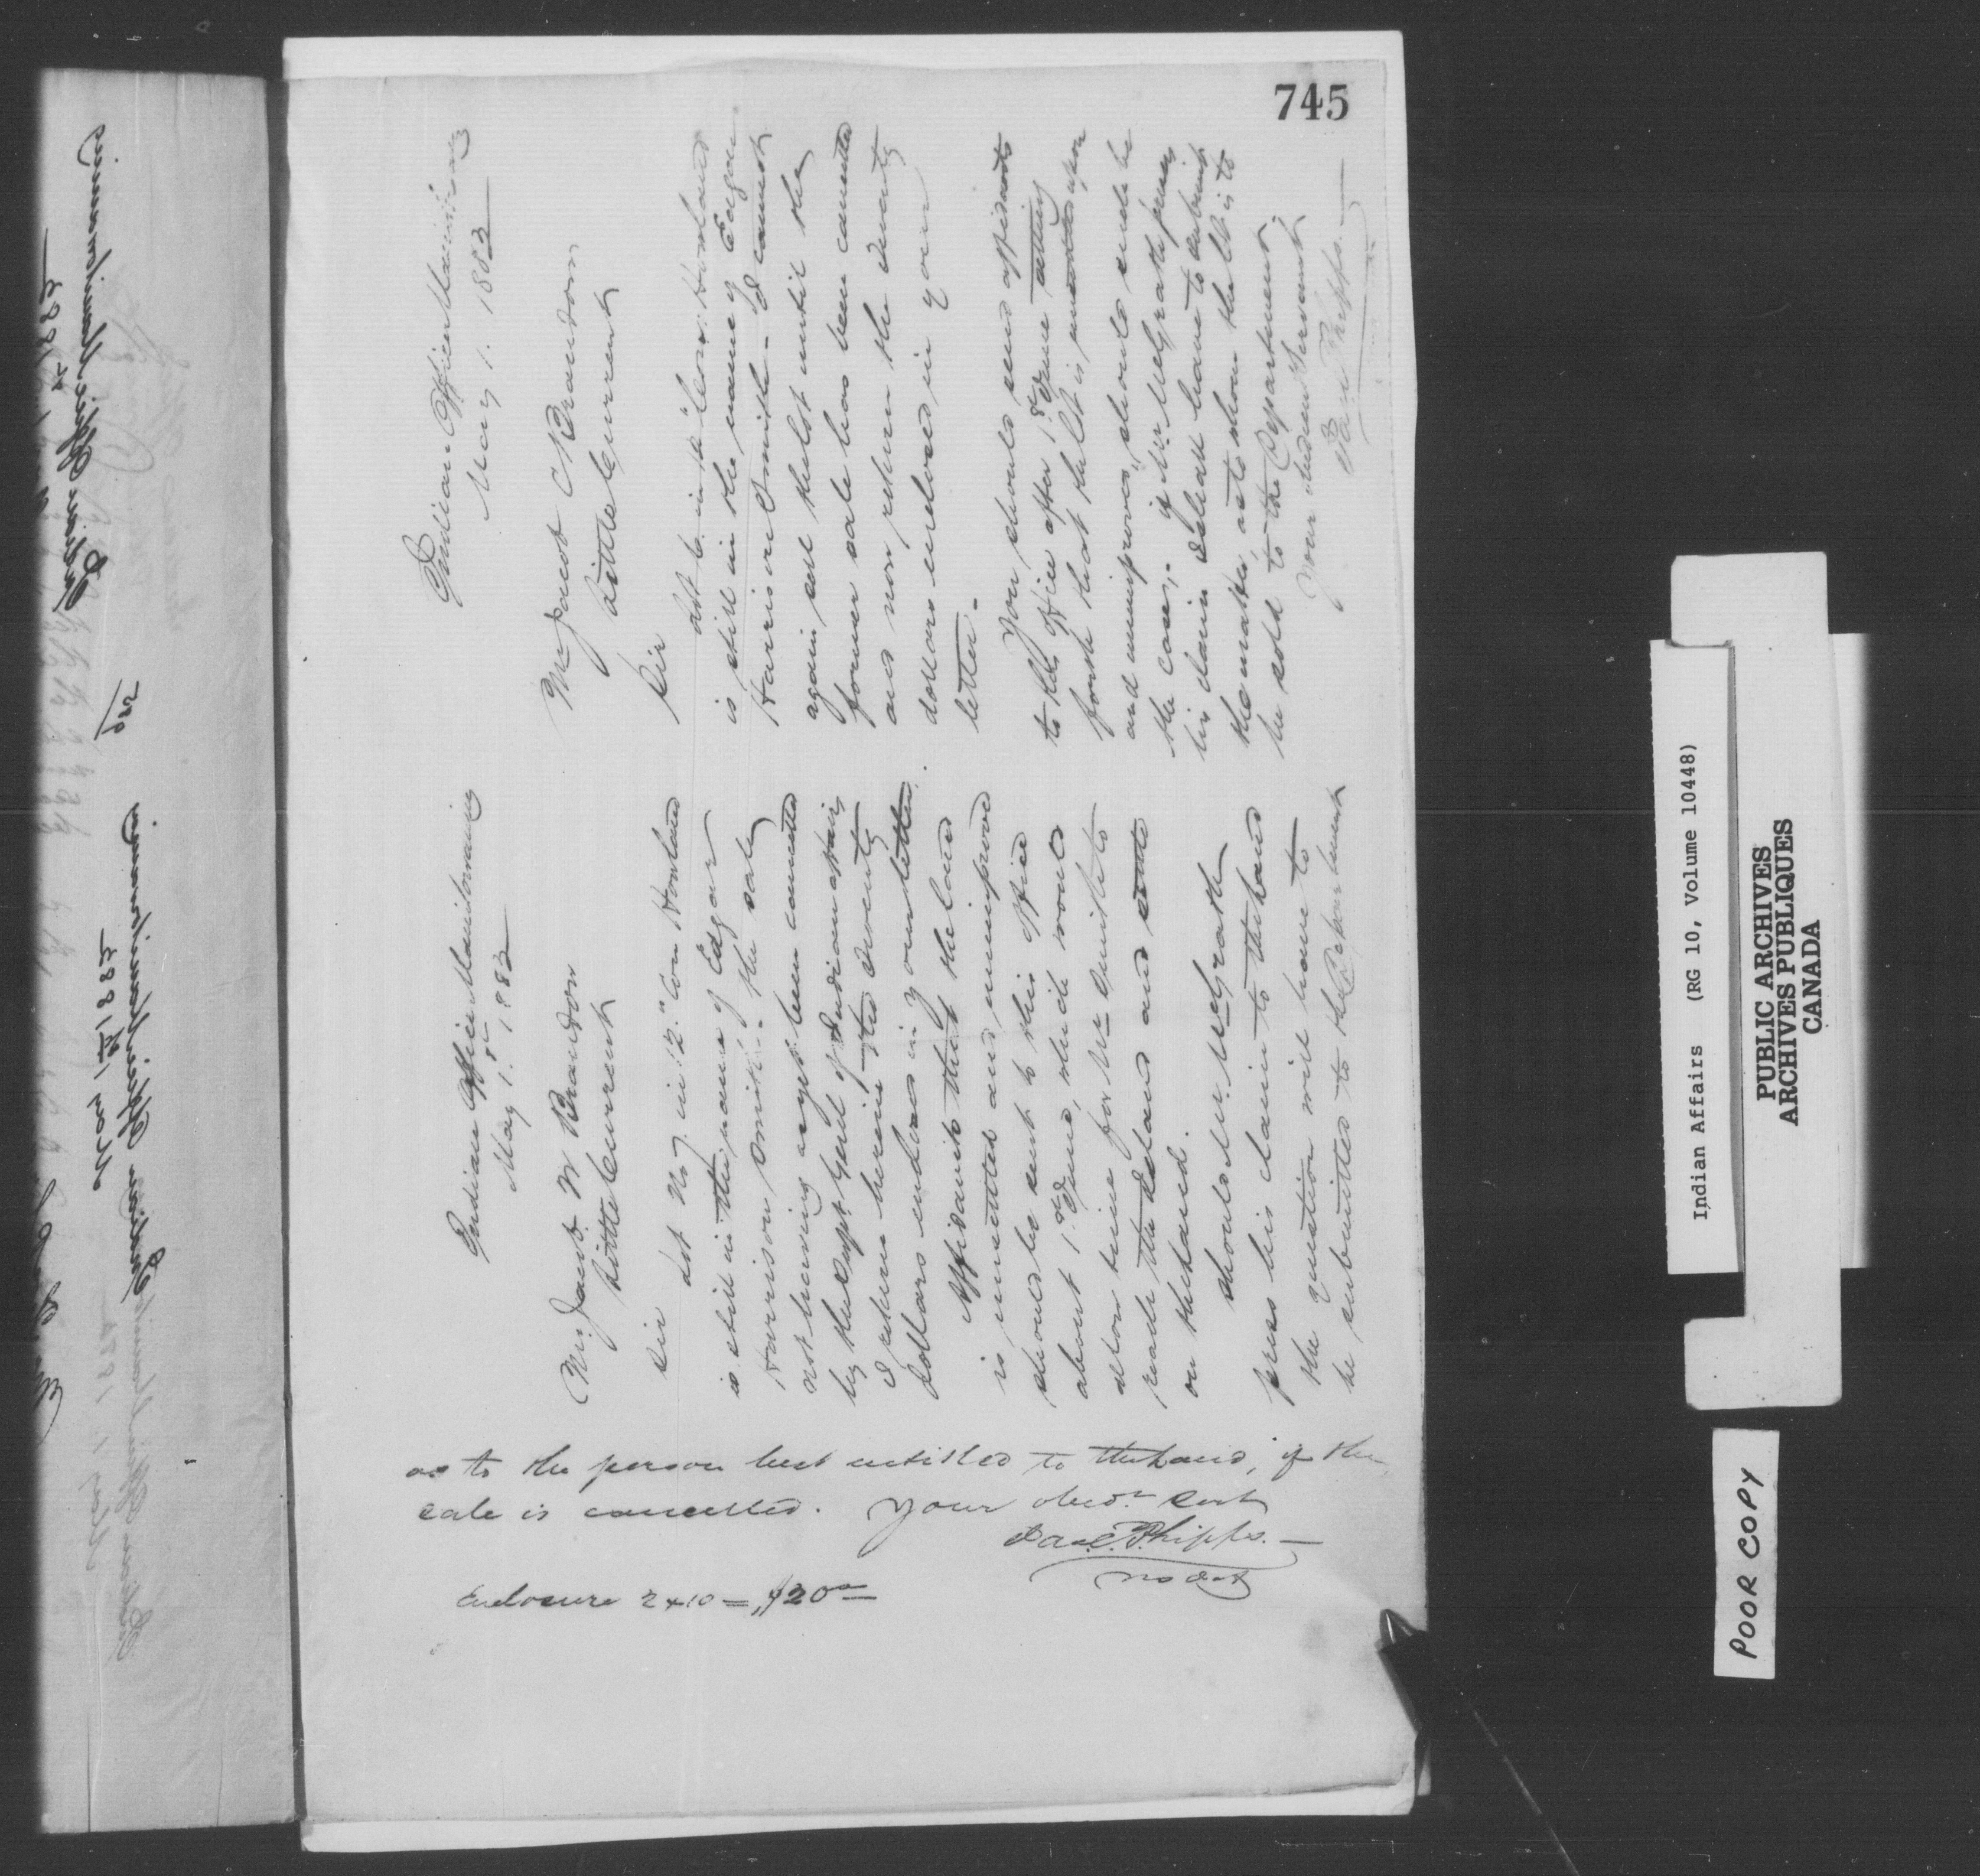 745
Indian Office Manitowaning
May 1. 1883
Mr Jacob C Brandon
Little Current
Sir
Lot 6. in 12" Con. Howland
is still in the name of Edgar
Harrison Smith - I cannot
again sell the lot until the
former sale has been cancelled
and now return the twenty
dollars enclosed in your
letter.
You should send affidavits
to the office after 1st June setting
forth that the lot is unsettled upon
and unimproved, should such be
the case,- if Mr McGrath presses
his claim I shall have to submit
the matter, as to whom the lot is to
be sold to the Department.
Your obedient Servant
Jas C. Phipps.
Indian Office Manitowaning
May 1st. 1883
Mr. Jacob W Brandon
Little Current
Sir
Lot No 7 in 12." Con Howland
is still in the name of Edgar
Harrison Smith - the sale
not having as yet been cancelled
by the Supt Genl of Indian affairs
I return herein the twenty
dollars enclosed in your letter.
Affidavits that the land
is unsettled and unimproved
should be sent to this office
about 1st June, which would
allow time for Mr Smith to
reach the Island and settle
on the land.
Should Mr. McGrath
press his claim to the land
the question will have to
be submitted to the Department
as to the person best entitled to the land, if the
sale is cancelled. Your obedt Servt
Jas C. Phipps.
Enclosure 2 x 10 = $20
May 1st 1883
Indian Office Manitowaning
Indian Office Manitowaning
Indian Affairs (RG 10, Volume 10448)
PUBLIC ARCHIVES
ARCHIVES PUBLIQUES
CANADA
POOR COPY